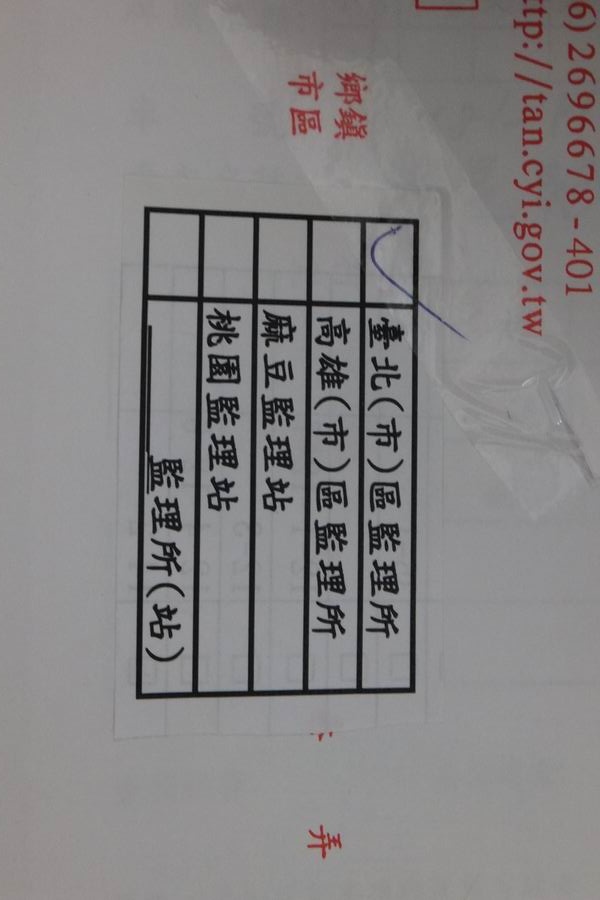 6) 2696678-401
ttp://tan.cyi.gov.tw
鄉鎮
市區
臺北(市)區監理所
高雄(市)區監理所
麻豆監理站
桃園監理站
監理所(站)
弄